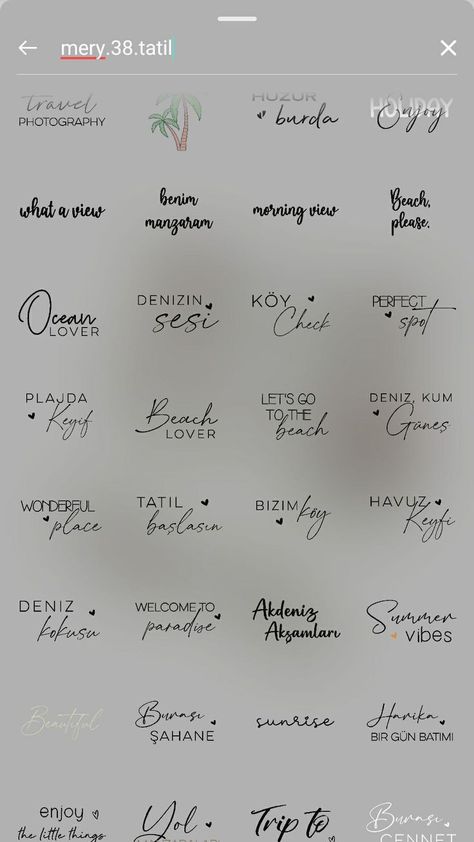 mery.38.tatil
travel
PHOTOGRAPHY
HUZUR
burda
HOLIDAY
Enjoy
what a view
benim
manzaram
morning view
Beach,
please.
Ocean
LOVER
DENIZIN
sesi
KÖY
Check
PERFECT
spot
PLAJDA
Keyif
Beach
LOVER
LET'S GO
TO THE
beach
DENIZ, KUM
Güneş
WONDERFUL
place
TATIL
başlasın
BIZIM köy
HAVUZ
Keyfi
DENIZ
kokusu
WELCOME TO
paradise
Akdeniz
Akşamları
Summer
vibes
Beautiful
Burası
ŞAHANE
sunrise
Harika
BIR GÜN BATIMI
enjoy
the little things
Yol
Trip to
Burası
CENNET